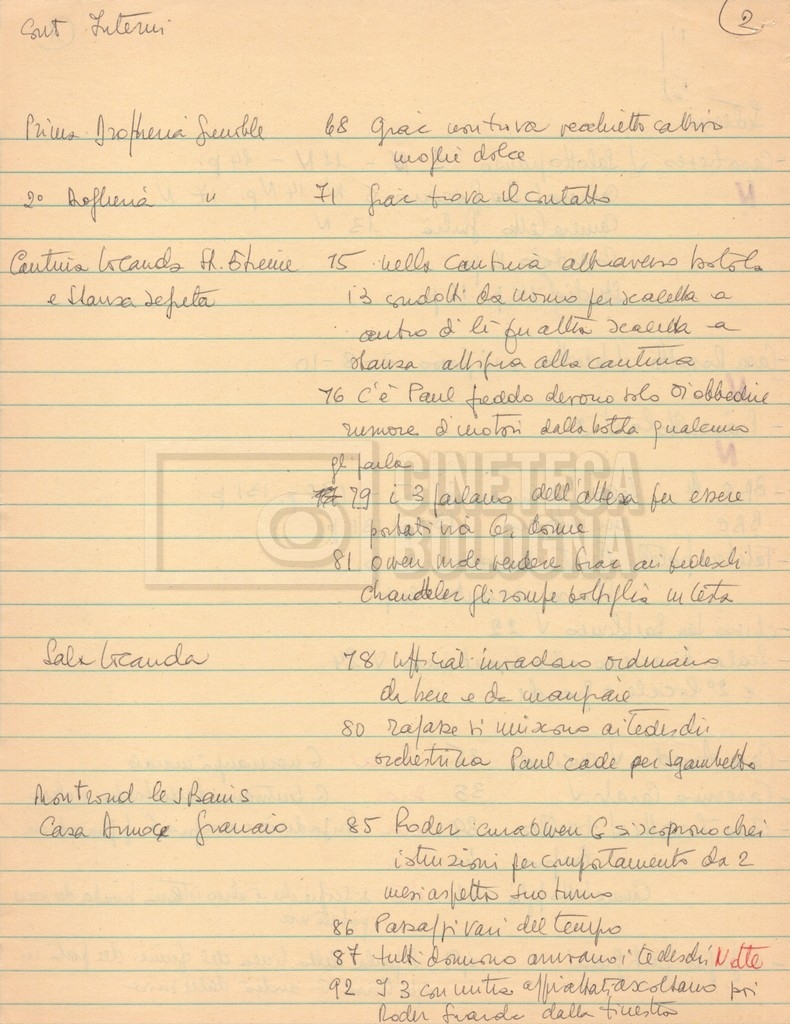 2
Cont Interni
Prima Drogheria Grenoble 68 Grac non trova vecchietto cattivo
moglie dolce
2º Drogheria " 71 Grac trova il contatto
Cantina locanda St. Etienne 75 nella cantina attraverso botola
e Stanza segreta i 3 condotti da uomo per scaletta a
centro di lì qualtra scaletta a
stanza attigua alla cantina
76 C'è Paul freddo devono solo obbedire
rumore di motori dalla botola qualcuno
gli parla
79 i 3 parlano dell'attesa per essere
portati via donne
81 Owen vuole vendere Grac ai tedeschi
Chandeler gli rompe bottiglia in testa
CINETECA
BOLOGNA
Sala locanda 78 ufficiali invadano ordinano
da bere e da mangiare
80 ragazze si uniscono ai tedeschi
orchestrina Paul cade per sgambetto
Montrond les Bains
Casa Granaio 85 Roder cura Owen G si scoprono ebrei
istruzioni per comportamento da 2
mesi aspetta suo turno
86 Passaggi vari del tempo
87 tutti dormono arrivano i tedeschi Notte
92 I 3 con mitra appiattati ascoltano poi
Roder guarda dalla finestra